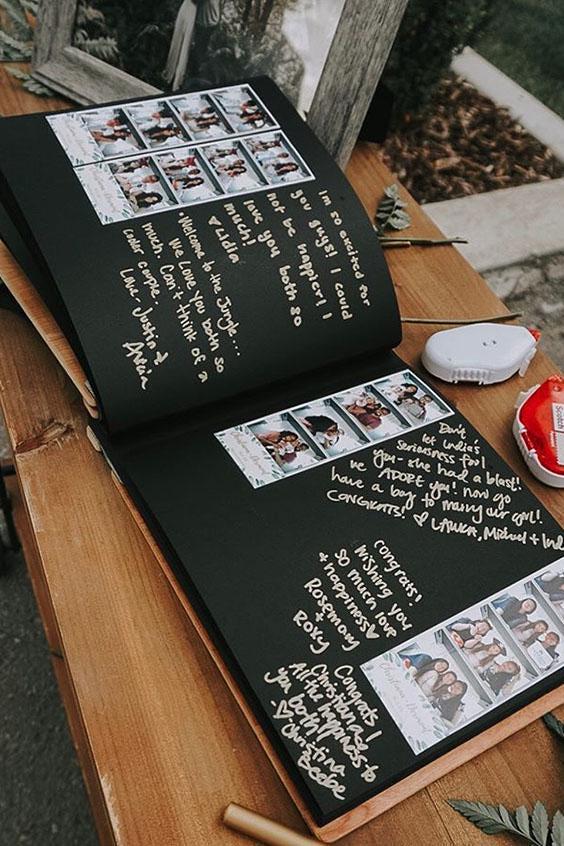 Im so excited for
you guys! I could
not be happier! I
love you both so
much!
♥ Lidia
Welcome to the Jungle...
We Love you both so
much. Can't think of a
cooler couple.
Love, Justin &
Don't
let India's
Seriousness fool
you - she had a blast!
we ADORE you! now go
have a boy to marry our girl!
CONGRATS! ♡ LAURA, Michael + Ind
congrats!
Wishing you
so much love
+ happiness ♥
Rosemary
+
Roxy
Congrats!
Christina
All the happiness to
you both!
♡ Christina
Beebe
Scotch